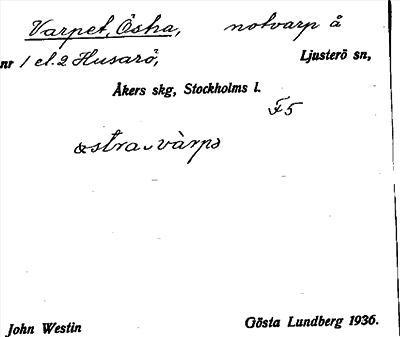 Varpet, Östra, notvarp å
nr 1 el. 2 Husarö, Ljusterö sn,
Åkers skg, Stockholms l.
F5
östra-värpə
John Westin Gösta Lundberg 1936.